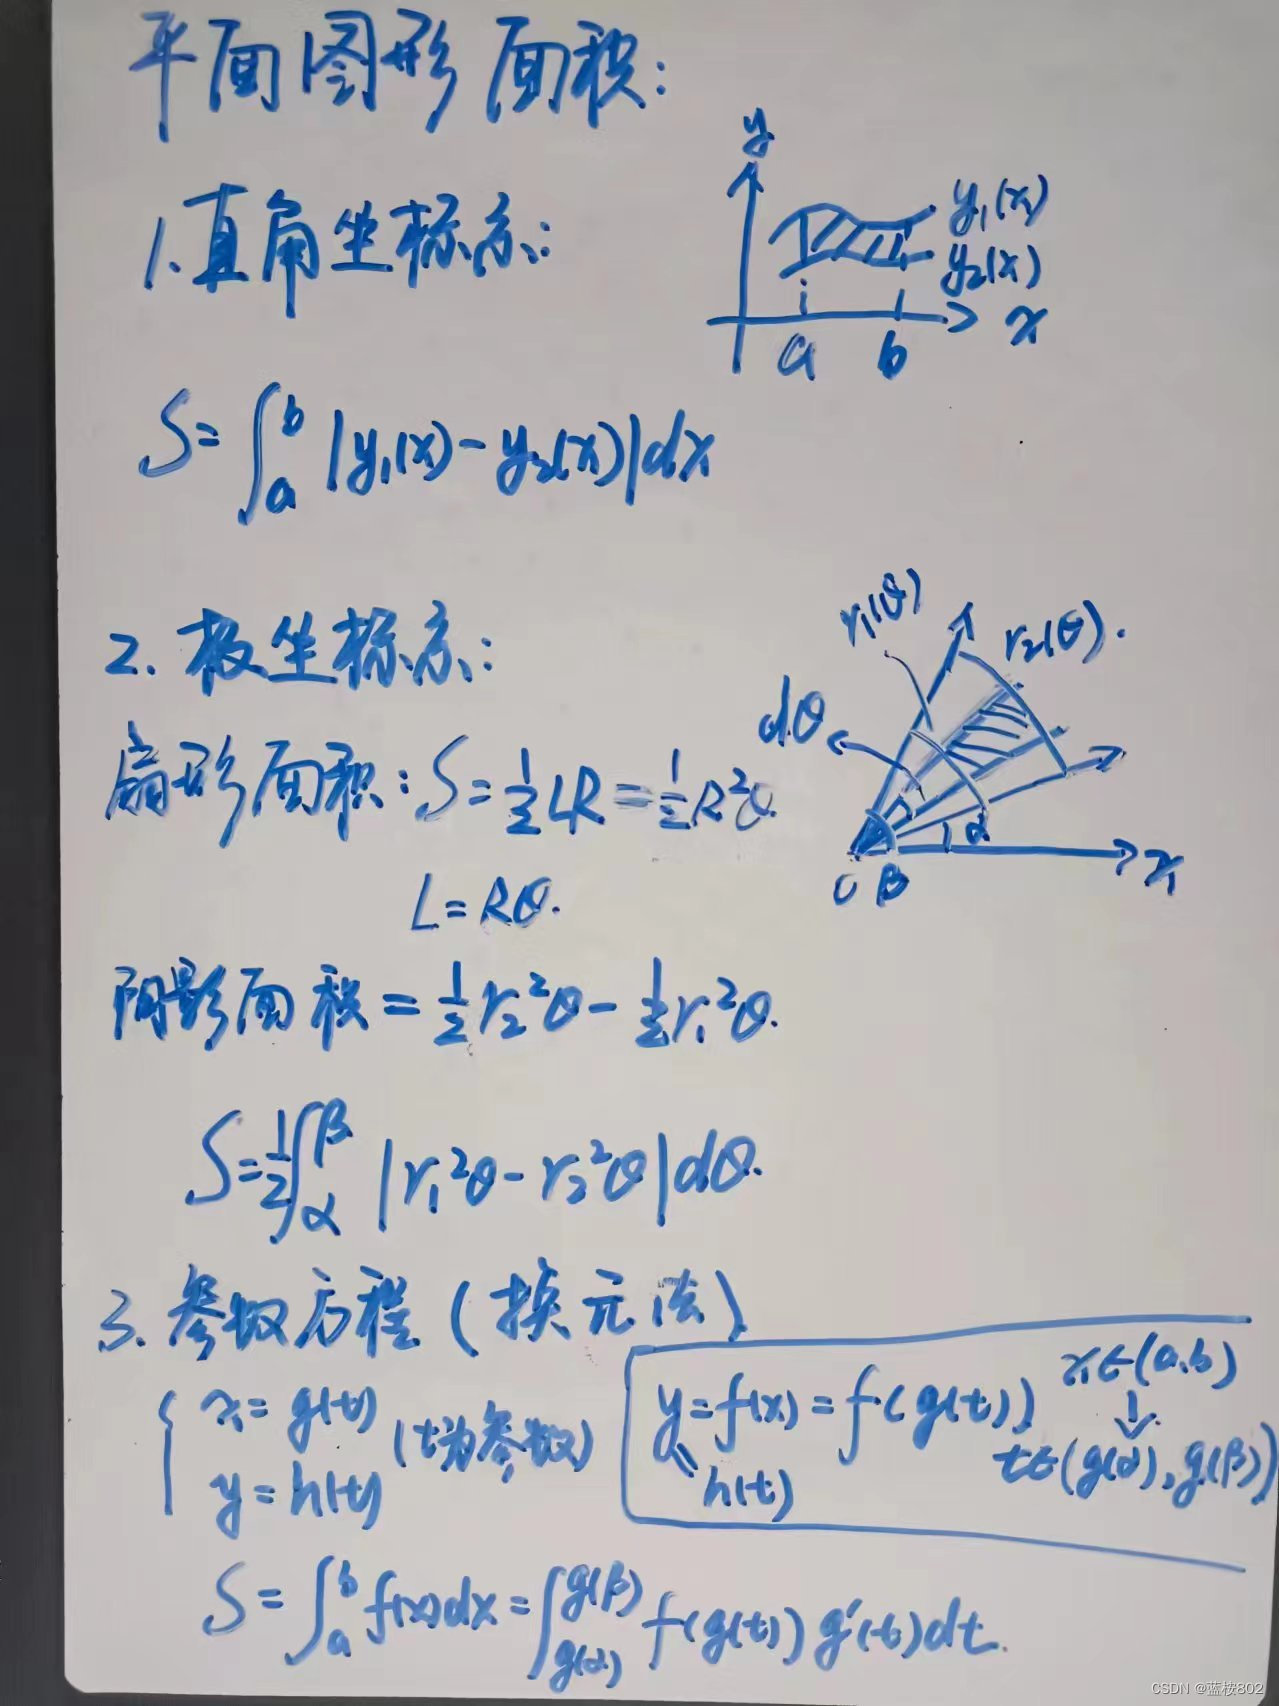 平面图形面积:
y
y₁(x)
1.直角坐标系:
y₂(x)
x
a b
S=∫ₐᵇ|y₁(x)-y₂(x)|dx
r₁(θ)
r₂(θ).
2.极坐标系:
dθ
扇形面积:S=½LR=½R²θ.
α
x
O β
L=Rθ.
阴影面积=½r₂²θ-½r₁²θ.
S=½∫_α^β|r₁²θ-r₂²θ|dθ.
3.参数方程(换元法)
{x=g(t)
y=h(t) (t为参数)
y=f(x)=f(g(t)) x∈(a,b)
↓
h(t) t∈(g(α),g(β))
S=∫ₐᵇf(x)dx=∫_{g(α)}^{g(β)}f(g(t))g'(t)dt.
CSDN @蓝桉802